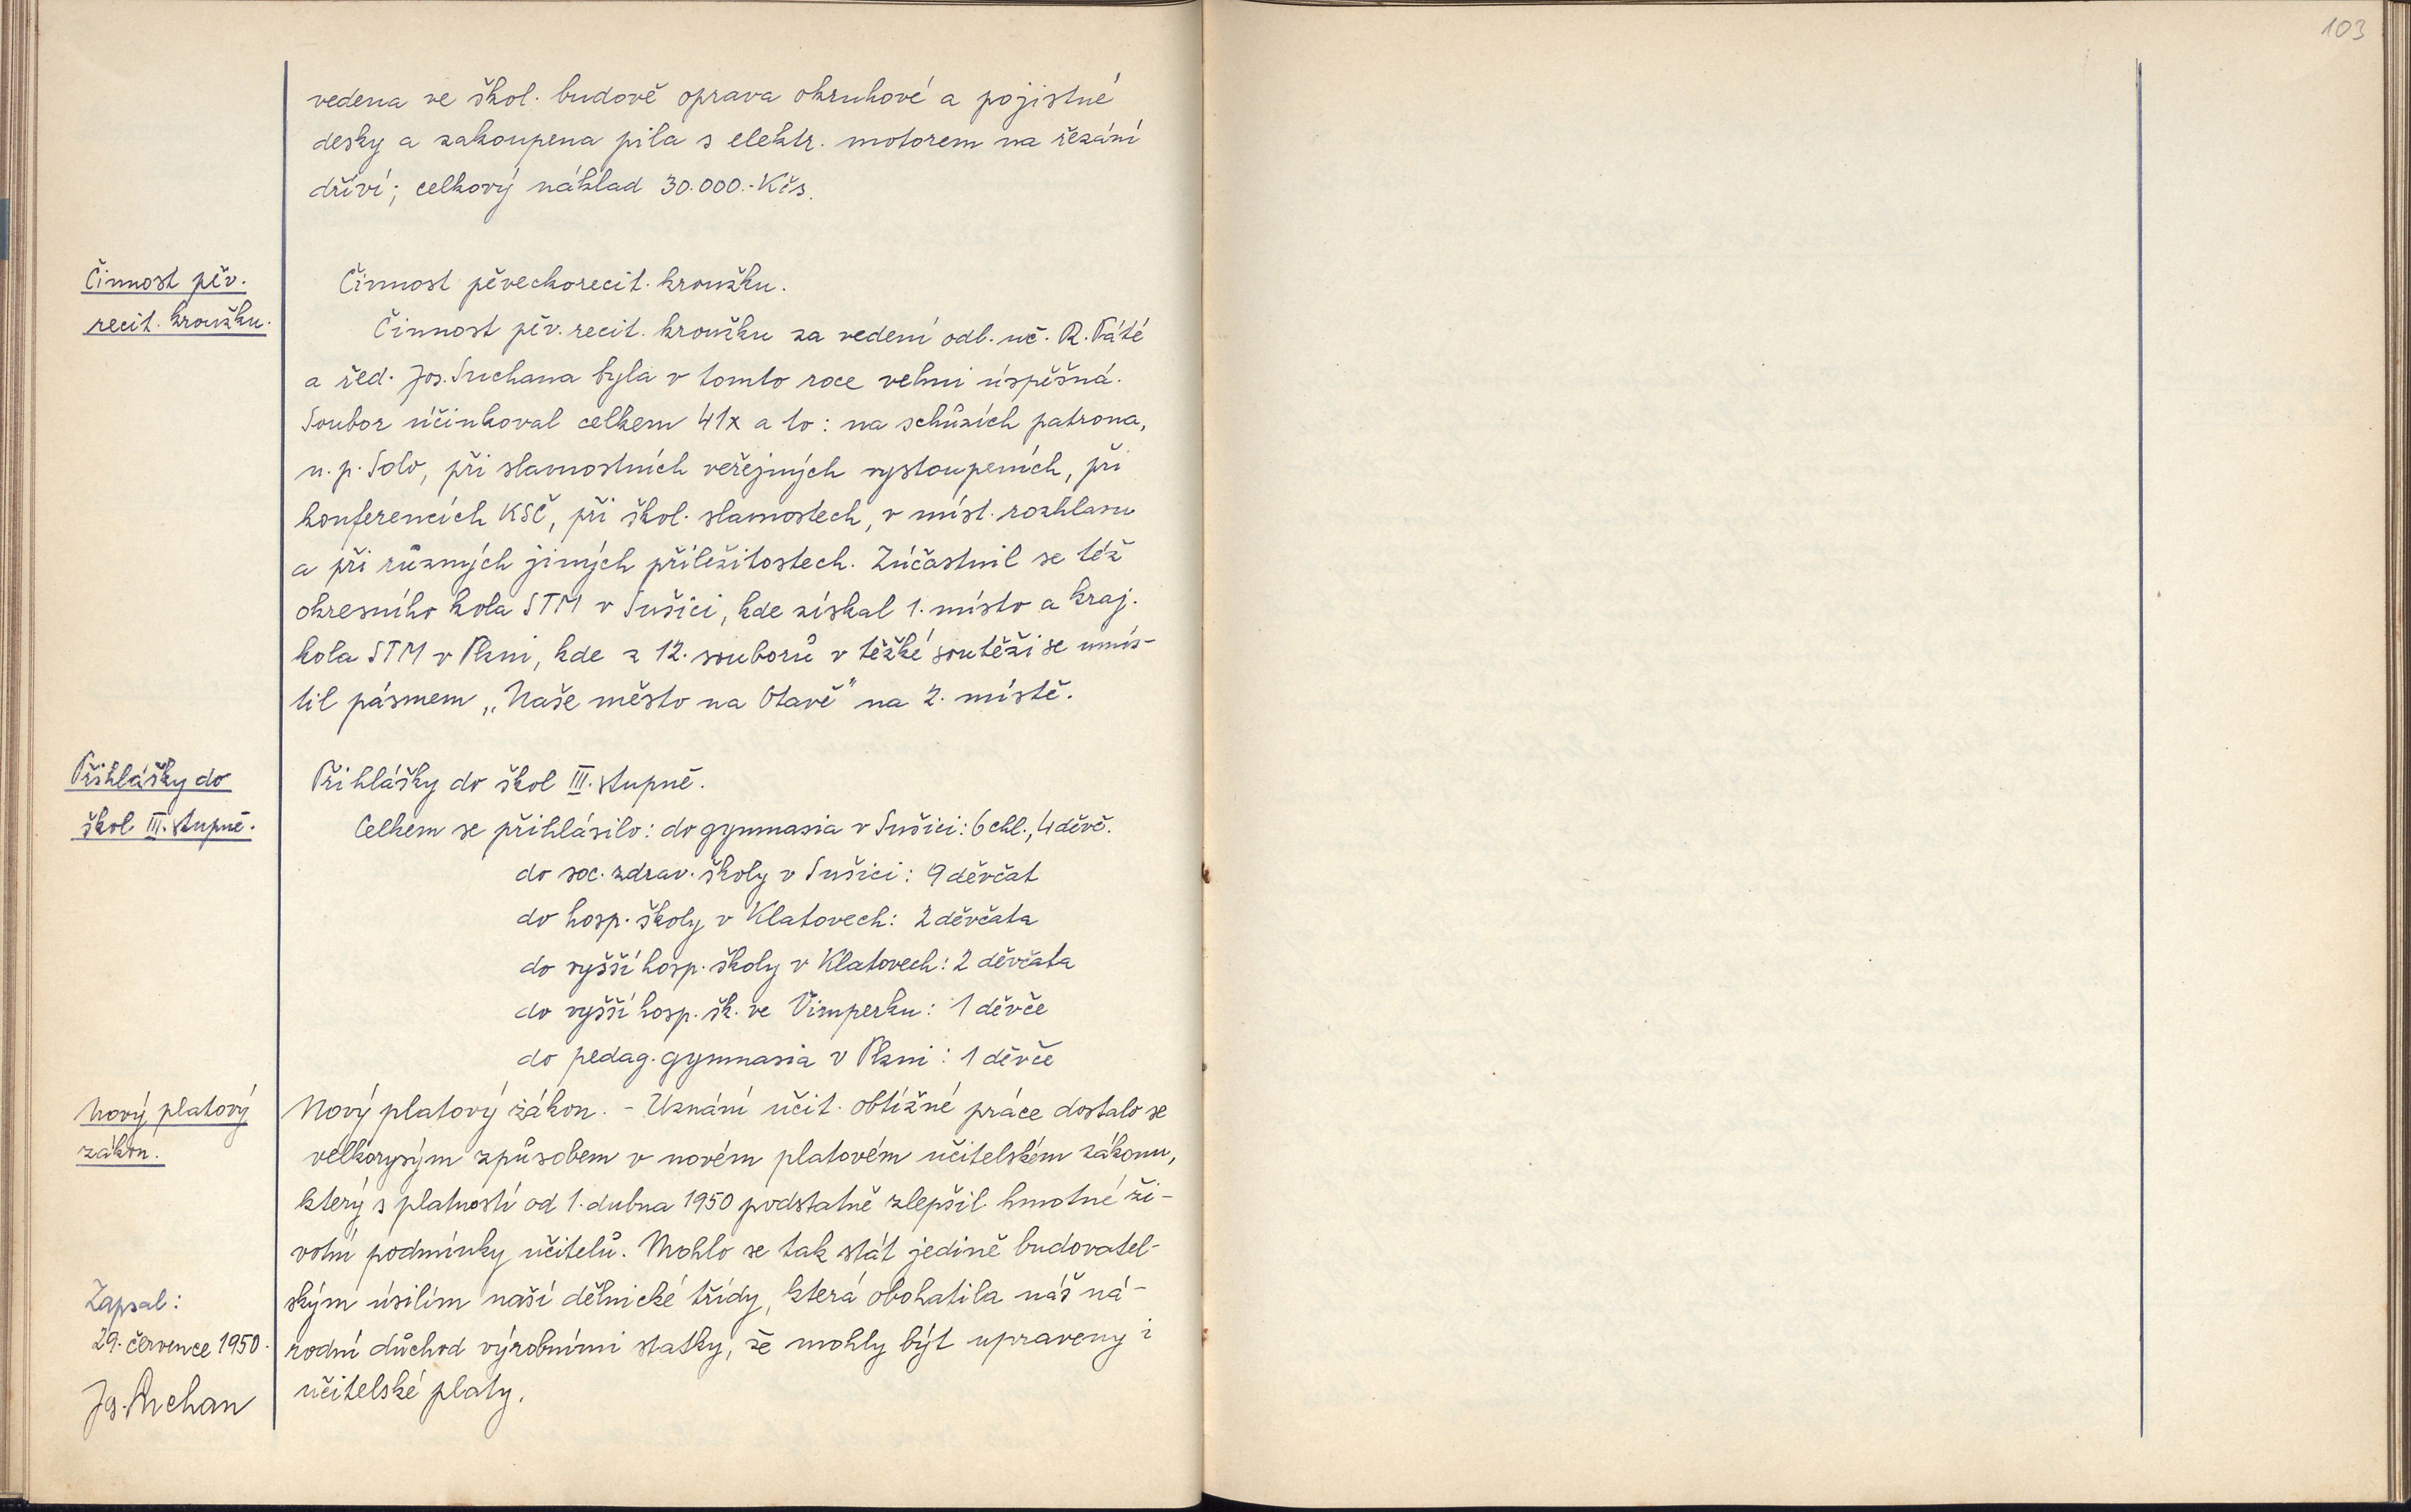 103
vedena ve škol. budově oprava okruhové a pojistné
desky a zakoupena pila s elektr. motorem na řezání
dříví; celkový náklad 30.000.- Kčs.
Činnost pěv.
recit. kroužku.
Činnost pěveckorecit. kroužku.
Činnost pěv. recit. kroužku za vedení odb. uč. R. Páté
a řed. Jos. Suchana byla v tomto roce velmi úspěšná.
Soubor účinkoval celkem 41x a to: na schůzích patrona,
n. p. Solo, při slavnostních veřejných vystoupeních, při
konferencích KSČ, při škol. slavnostech, v míst. rozhlasu
a při různých jiných příležitostech. Zúčastnil se též
okresního kola STM v Sušici, kde získal 1. místo a kraj.
kola STM v Plzni, kde z 12. souborů v těžké soutěži se umís-
til pásmem „Naše město na Otavě" na 2. místě.
Přihlášky do
škol III. stupně.
Přihlášky do škol III. stupně.
Celkem se přihlásilo: do gymnasia v Sušici: 6 chl., 4 děvč.
do soc. zdrav. školy v Sušici: 9 děvčat
do hosp. školy v Klatovech: 2 děvčata
do vyšší hosp. školy v Klatovech: 2 děvčata
do vyšší hosp. šk. ve Vimperku: 1 děvče
do pedag. gymnasia v Plzni: 1 děvče
Nový platový
zákon.
Nový platový zákon. - Uznání učit. obtížné práce dostalo se
velkorysým způsobem v novém platovém učitelském zákonu,
který s platností od 1. dubna 1950 podstatně zlepšil hmotné ži-
votní podmínky učitelů. Mohlo se tak stát jedině budovatel-
ským úsilím naší dělnické třídy, která obohatila náš ná-
rodní důchod výrobními statky, že mohly být upraveny i
učitelské platy.
Zapsal:
29. července 1950.
Jos. Suchan